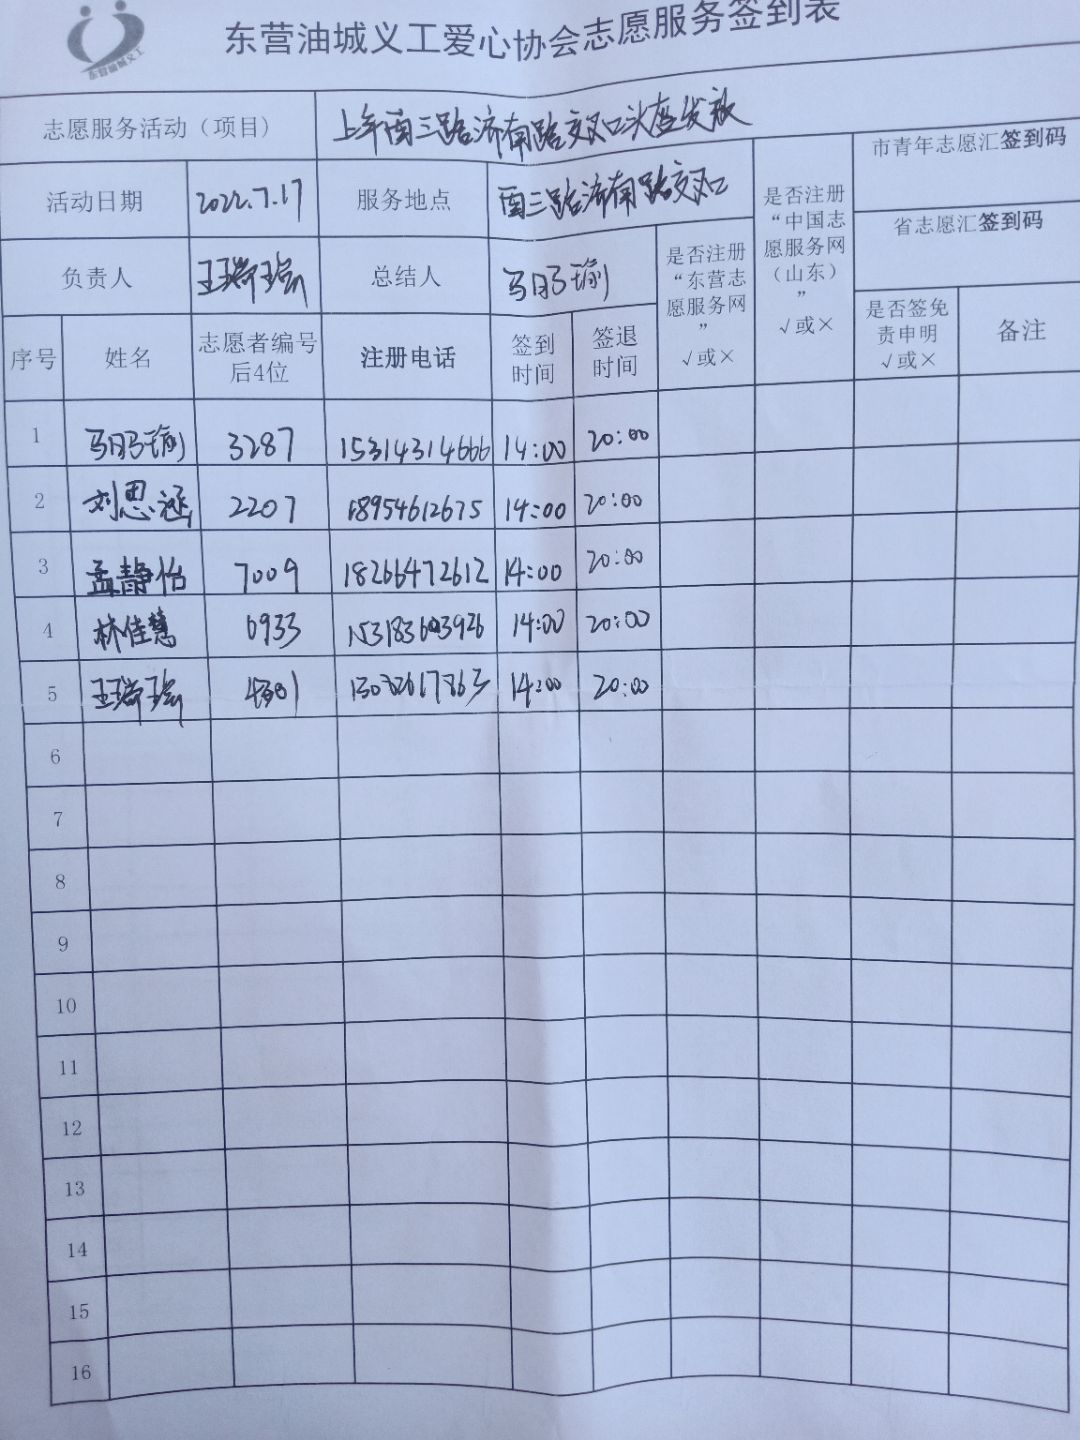 东营油城义工
东营油城义工爱心协会志愿服务签到表
志愿服务活动（项目） 南三路济南路交叉口头盔发放
活动日期 2022.7.17 服务地点 南三路济南路交叉口
负责人 王瑞瑶 总结人
是否注册“东营志愿服务网” √或×
是否注册“中国志愿服务网（山东）” √或×
市青年志愿汇签到码
省志愿汇签到码
序号 姓名 志愿者编号后4位 注册电话 签到时间 签退时间 是否签免责申明 √或× 备注
1 3287 15314314666 14:00 20:00
2 刘思涵 2207 18954612675 14:00 20:00
3 孟静怡 7009 18266472612 14:00 20:00
4 林佳慧 6933 14:00 20:00
5 王瑞瑶 14:00 20:00
6
7
8
9
10
11
12
13
14
15
16